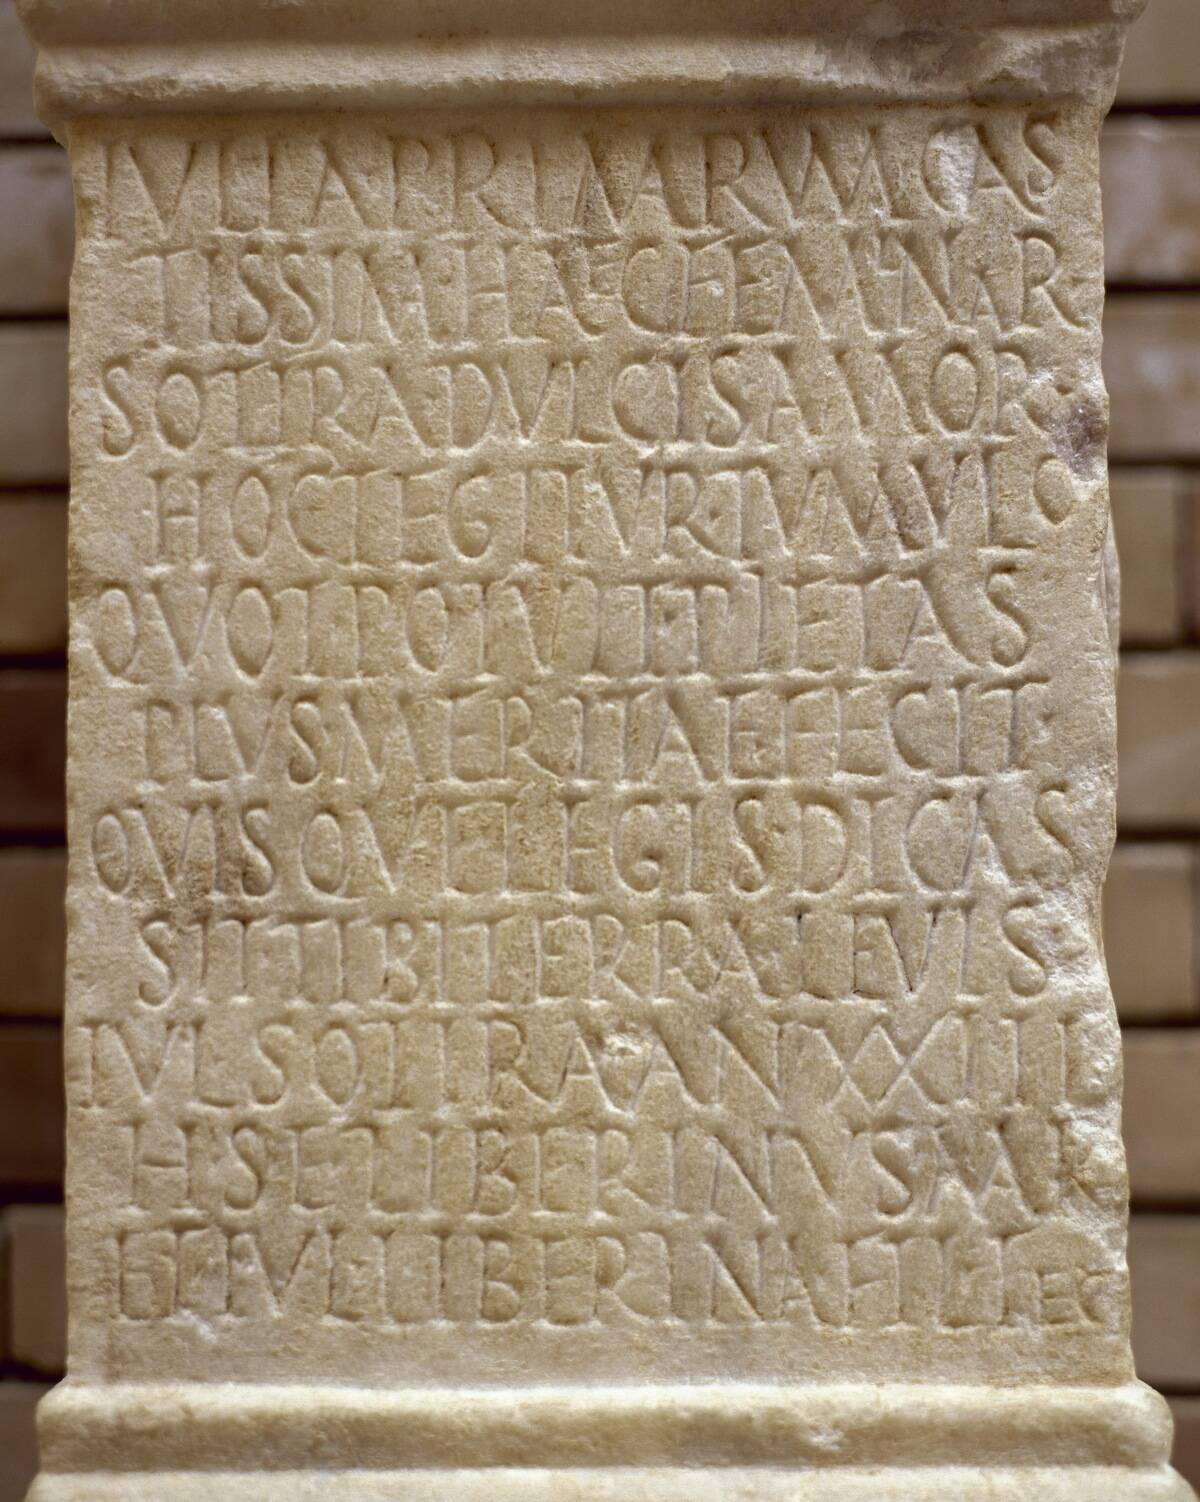 IVLIA PRIMARVM CAS
TISSIMA HAEC FEMINAR
SOTIRA DVLCIS AMOR
HOC LEGITVR TVMVLO
QVOT POTVIT PIETAS
PLVS MERITAE FECIT
QVISQVE LEGIS DICAS
SIT TIBI TERRA LEVIS
IVL SOTIRA AN XXIII
H S E LIBERINVS MAR
ET IVL LIBERINA FIL FEC